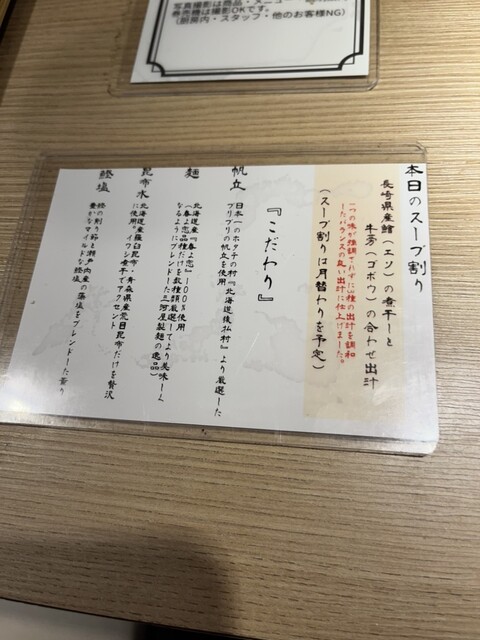 写真撮影は商品・メニュー
券売機は撮影OKです。
(厨房内・スタッフ・他のお客様NG)
本日のスープ割り
長崎県産鱛(エソ)の煮干しと
牛蒡(ゴボウ)の合わせ出汁
一つの味が強調されずに二種の出汁を調和
したバランスの良い出汁に仕上げました。
(スープ割りは月替わりを予定)
『こだわり』
帆立
日本一のホタテの村『北海道猿払村』より厳選した
プリプリの帆立を使用
麺
北海道産『春よ恋』100%使用
(春よ恋品種だけを数種類厳選してより美味しく
なるようにブレンドした三河屋製麺の逸品)
昆布水
北海道産羅臼昆布・青森県産荒目昆布だけを贅沢
に使用。イワシ煮干でアクセント
鰹塩
鰹の削り節と瀬戸内産の藻塩をブレンドした薫り
豊かなマイルドな鰹塩